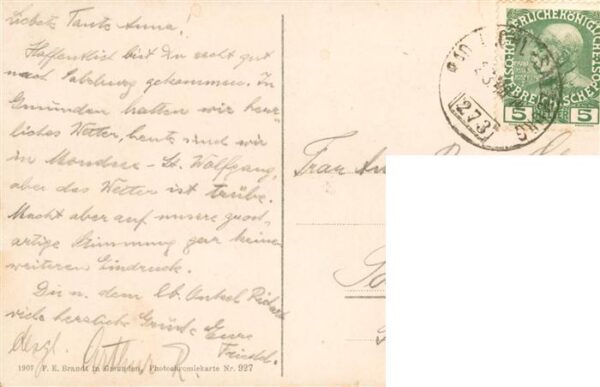 Liebste Tante Anna!
Hoffentlich bist Du recht gut
nach Salzburg gekommen. In
Gmunden hatten wir herr-
liches Wetter, heute sind wir
in Mondsee - St. Wolfgang,
aber das Wetter ist trübe.
Macht aber auf unsere gross-
artige Stimmung gar keinen
weiteren Eindruck.
Dir u. dem lb. Onkel Richard
viele herzliche Grüsse Eure
desgl. Arthur R.
1907 F. E. Brandt in Gmunden, Photochromiekarte Nr. 927
5 5
273
Frau